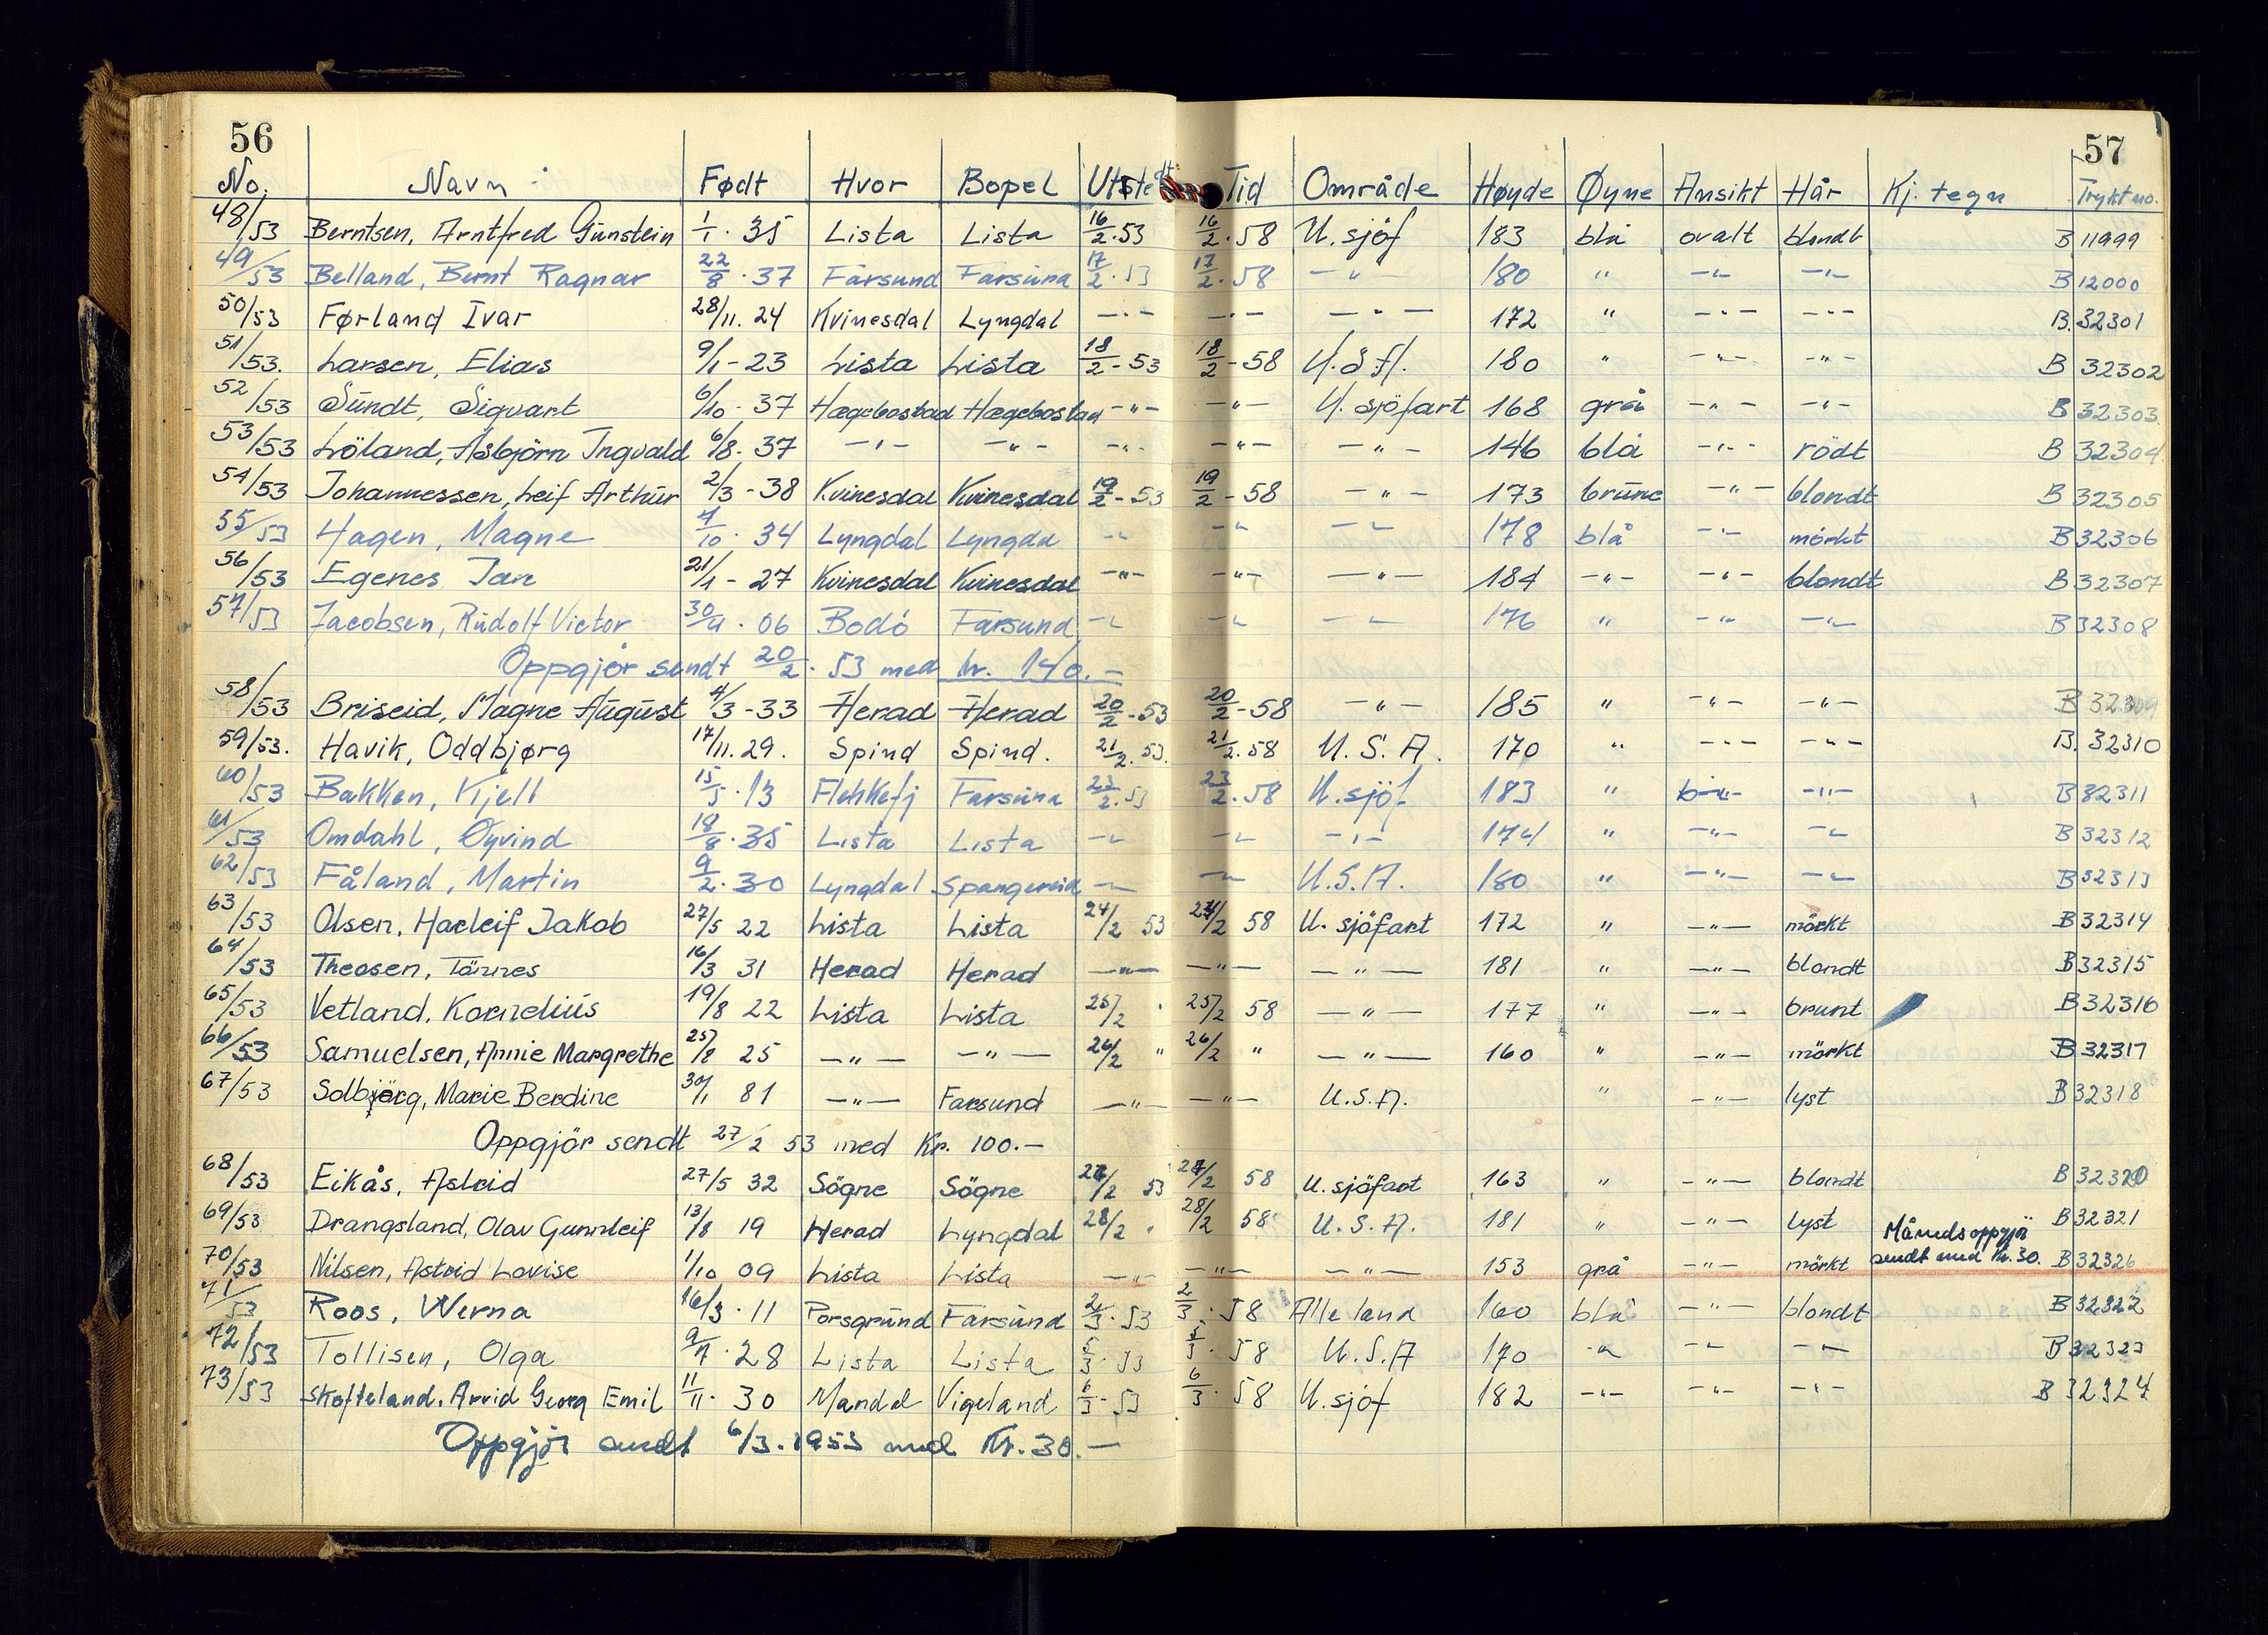 56
57
No. Navn Født Hvor Bopel Utstedt Tid Område Høyde Øyne Ansikt Hår Kj. tegn Trykt no.
48/53 Berntsen, Arntfred Gunstein 1/1. 35 Lista Lista 16/2.53 16/2.58 U.sjöf 183 blå ovalt blondt B 11999
49/53 Belland, Bernt Ragnar 22/8. 37 Farsund Farsund 17/2.53 17/2.58 -"- 180 " -"- -"- B 12000
50/53 Førland Ivar 28/11. 24 Kvinesdal Lyngdal -"- -"- -"- 172 " -"- -"- B. 32301
51/53. Larsen, Elias 9/1-23 Lista Lista 18/2-53 18/2-58 U.S.A. 180 " -"- -"- B 32302
52/53 Sundt, Sigvart 6/10. 37 Hægebostad Hægebostad -"- -"- U. sjöfart 168 grå -"- -"- B 32303
53/53 Löland, Asbjörn Ingvald 6/8. 37 -"- -"- -"- -"- -"- 146 blå -"- rödt B 32304
54/53 Johannessen, Leif Arthur 2/3-38 Kvinesdal Kvinesdal 19/2-53 19/2-58 -"- 173 brune -"- blondt B 32305
55/53 Hagen, Magne 7/10. 34 Lyngdal Lyngda -"- -"- -"- 178 blå -"- mörkt B 32306
56/53 Egenes Jan 21/1-27 Kvinesdal Kvinesdal -"- -"- -"- 184 -"- -"- blondt B 32307
57/53 Jacobsen, Rudolf Victor 30/4. 06 Bodö Farsund -"- -"- -"- 176 " -"- -"- B 32308
Oppgjør sendt 20/2. 53 med kr. 140.-
58/53 Briseid, Magne August 4/3-33 Herad Herad 20/2-53 20/2-58 -"- 185 " -"- -"- B 32309
59/53. Havik, Oddbjørg 17/11. 29. Spind Spind. 21/2.53. 21/2.58 U.S.A. 170 " -"- -"- B. 32310
60/53 Bakken, Kjell 15/5.13 Flekkefj Farsund 23/2.53 23/2.58 U.sjöf 183 " -"- -"- B 32311
61/53 Omdahl, Øyvind 18/8.35 Lista Lista -"- -"- -"- 174 " -"- -"- B 32312
62/53 Fåland, Martin 9/2.30 Lyngdal Spangereid -"- -"- U.S.A. 180 " -"- -"- B 32313
63/53 Olsen, Harleif Jakob 27/5 22 Lista Lista 24/2 53 24/2 58 U. sjöfart 172 " -"- mörkt B 32314
64/53 Theosen, Tönnes 16/3 31 Herad Herad -"- -"- -"- 181 " -"- blondt B 32315
65/53 Vetland, Kornelius 19/8 22 Lista Lista 25/2 " 25/2 58 -"- 177 " -"- brunt B 32316
66/53 Samuelsen, Annie Margrethe 25/8 25 -"- -"- 26/2 " 26/2 " -"- 160 " -"- mörkt B 32317
67/53 Solbjörg, Marie Berdine 30/1 81 -"- Farsund -"- -"- U.S.A. " -"- lyst B 32318
Oppgjör sendt 27/2 53 med Kr. 100.-
68/53 Eikås, Astrid 27/5 32 Sögne Sögne 27/2 53 27/2 58 U.sjöfart 163 " -"- blondt B 32320
69/53 Drangsland, Olav Gunnleif 13/8 19 Herad Lyngdal 28/2 " 28/2 58 U.S.A. 181 " -"- lyst B 32321
Månedsoppgjö
70/53 Nilsen, Astrid Lovise 1/10 09 Lista Lista -"- -"- -"- 153 grå -"- mörkt sendt med Kr. 30. B 32326
71/53 Roos, Werna 16/3. 11 Porsgrund Farsund 2/3.53 2/3.58 Alle land 160 blå -"- blondt B 32322
72/53 Tollisen, Olga 9/7.28 Lista Lista 5/3.53 5/3.58 U.S.A 170 -"- -"- -"- B 32323
73/53 Skofteland. Arvid Georg Emil 11/11. 30 Mandal Vigeland 6/3-53 6/3.58 U.sjöf 182 -"- -"- -"- B 32324
Oppgjör sendt 6/3.1953 med Kr. 30.-